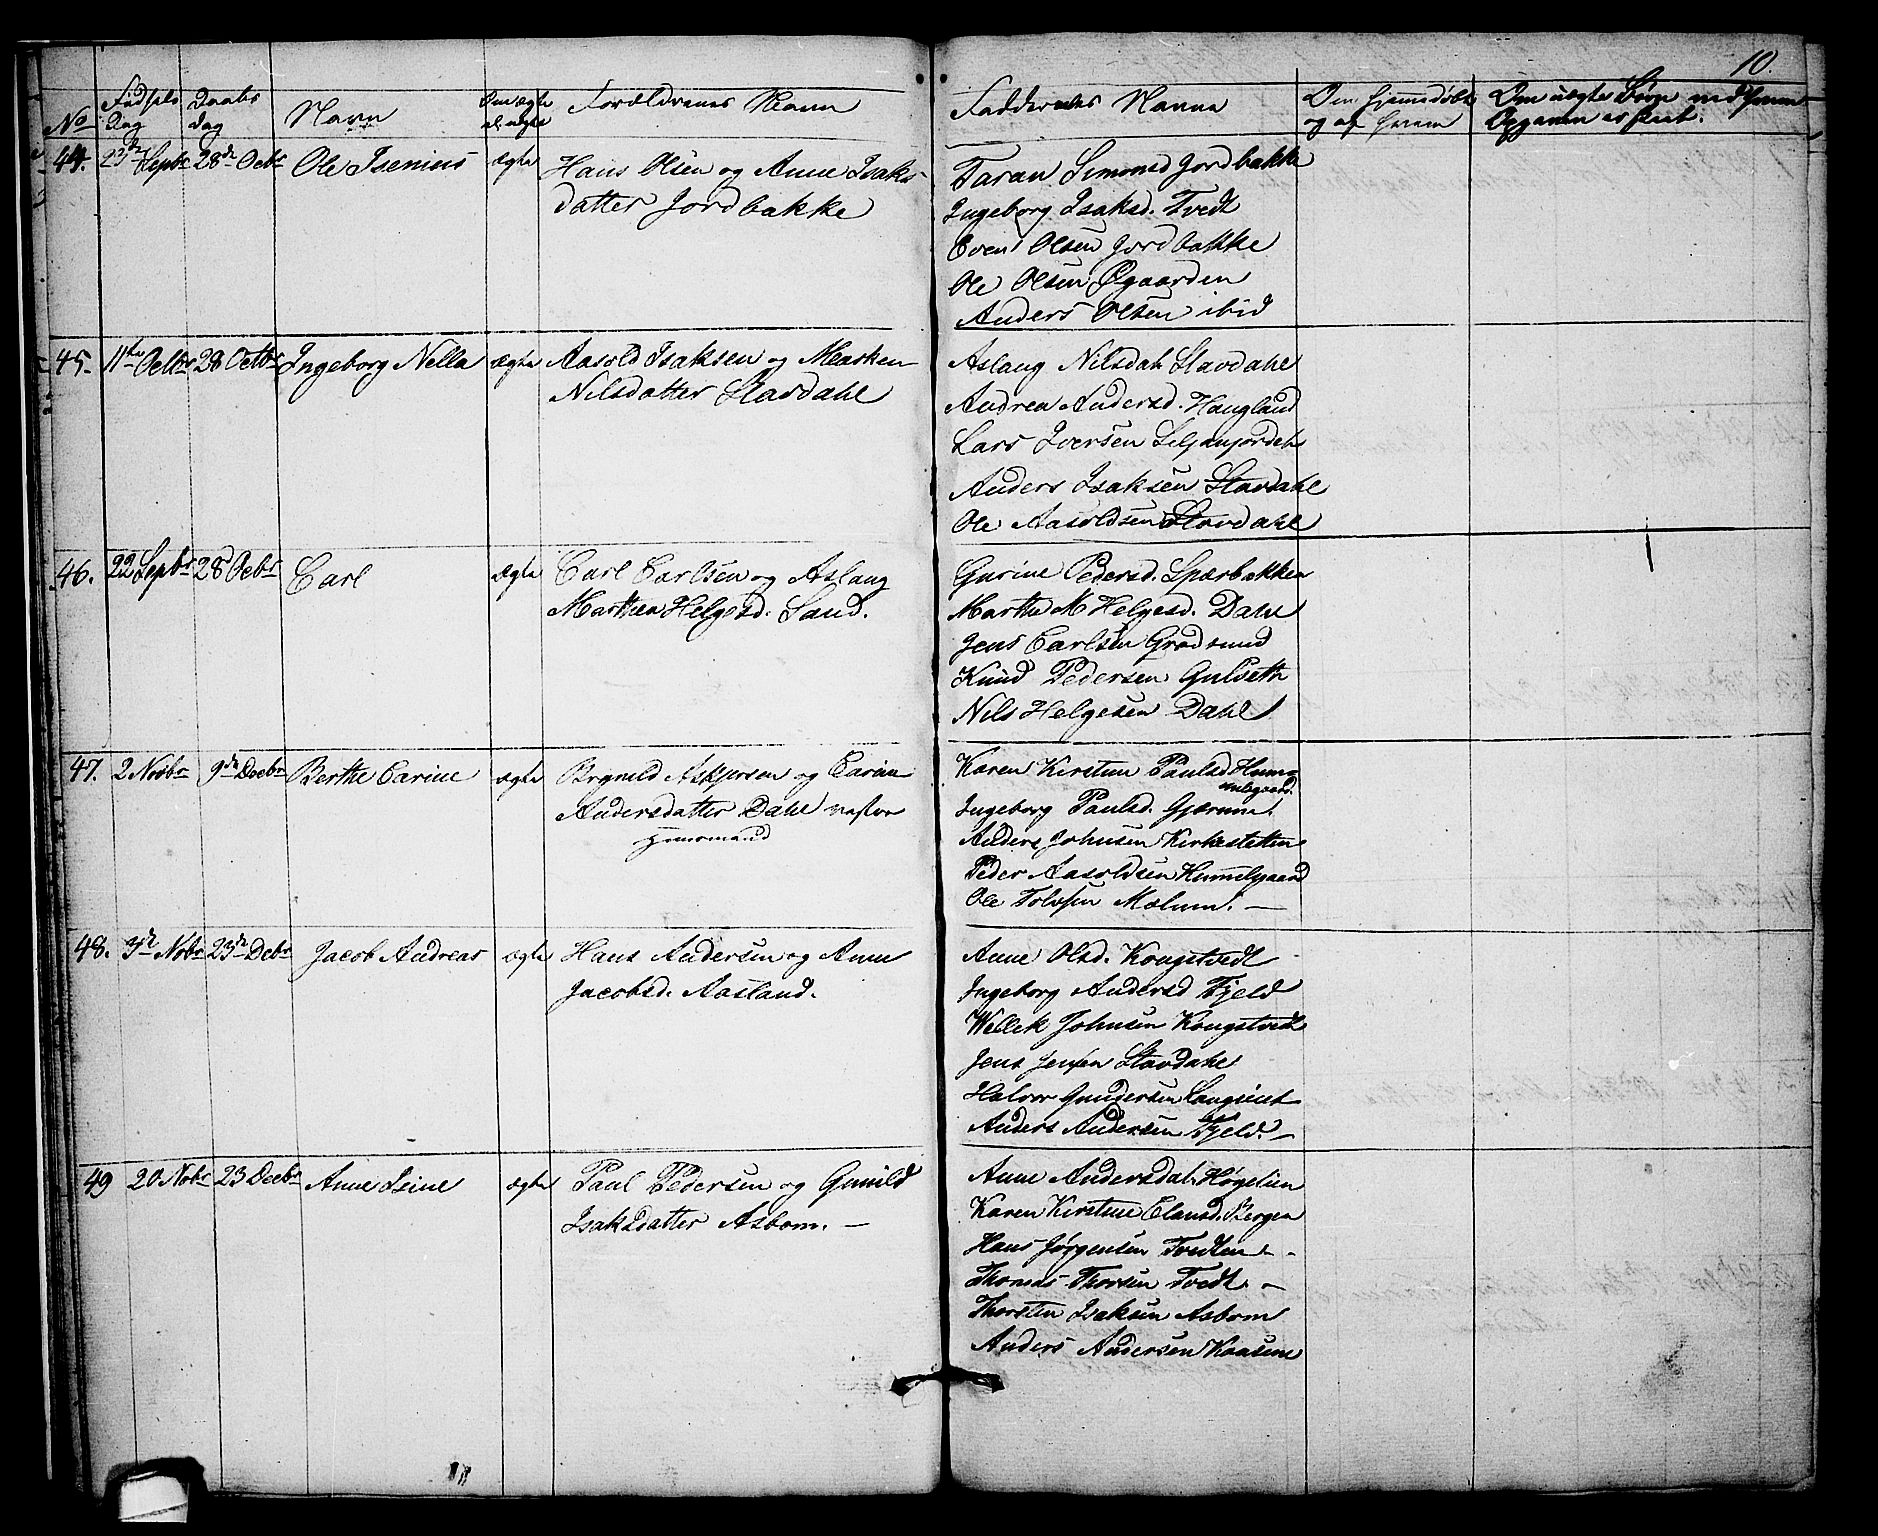 10.
No
Fødsels Dag
Daabs dag
Navn
Om ægte el. uægte
Forældrenes Navn
Faddernes Navne
Om hjemmedøbt og af hvem
Om uægte Børn ved hvem Opgaven er skeet.
44. 23de Septbr 28de Octbr Ole Isenius ægte Hans Olsen og Anne Isaks-
datter Jordbakke
Taran Simonsd Jordbakke
Ingeborg Isaksd. Tvedt
Even Olsen Jordbakke
Ole Olsen Øgaarden
Anders Olsen ibid
45. 11te Octbr 28 Octbr Ingeborg Nella ægte Aasold Isaksen og Marken
Nilsdatter Stavdahl
Aslaug Nilsdat. Stavdahl
Andrea Andersd. Haugland
Lars Iversen Seljanjordet
Anders Isaksen Stavdahl
Ole Aasoldsen Stavdahl
46. 22 Septbr 28 Octbr Carl ægte Carl Carlsen og Aslaug
Marthea Helgesd. Sand.
Gurine Pedersd. Spærbakken
Marthe M Helgesd. Dahl
Jens Carlsen Grødsund
Knud Pedersen Gulseth
Nils Helgesen Dahl
47. 2 Novbr 9de Decbr Berthe Carine ægte Brynild Askjersen og Carine
Andersdatter Dahl vestre
Huusmand
Karen Kirstine Paulsd Himmelgaard
Ingeborg Paulsd. Gjærum
Anders Johnsen Kirkesletten
Peder Aasoldsen Himmelgaard
Ole Tolvsen Mælum. —
48. 3de Nobr 23de Debr Jacob Andreas ægte Hans Andersen og Anne
Jacobsd. Aasland.
Anne Olsd. Kongstvedt
Ingeborg Andersd Fjeld
Wettek Johnsen Kongstvedt
Jens Jensen Stavdahl
Halvor Gundersen Langsiint
Anders Andersen Fjeld. —
49 20 Nobr 23 Decbr Anne Isine ægte Paul Pedersen og Gunild
Isaksdatter Asbom. —
Anne Andersdat. Høgelien
Karen Kirstine Clausd. Bergen
Hans Jørgensen Tvedten —
Thomas Thorsen Tvedt. —
Thorsten Isaksen Asbom
Anders Andersen Kaasene